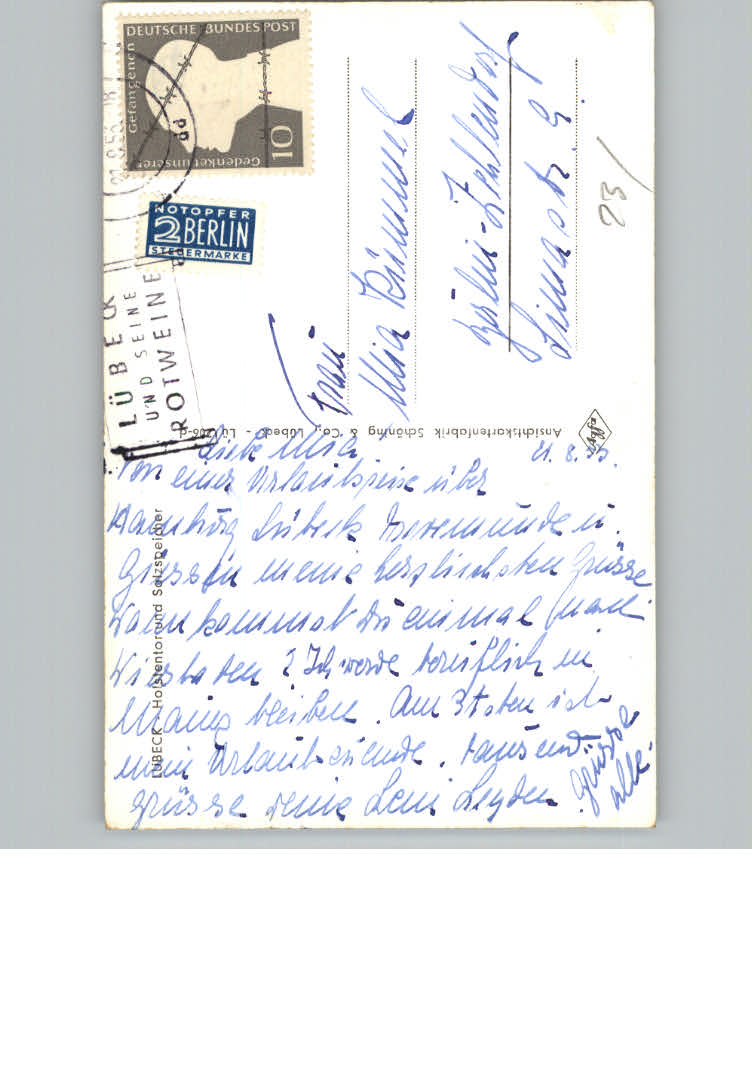 DEUTSCHE BUNDESPOST
Gedenket unserer Gefangenen
10
NOTOPFER
2 BERLIN
STEUERMARKE
LÜBECK
UND SEINE
ROTWEINE
Frau
Mia Kümmel
Berlin-Zehlendorf
Limastr. 9
23/
Ansichtskartenfabrik Schöning & Co., Lübeck - Lü
Agfa
LÜBECK - Holstentor und Salzspeicher
Liebe Mia 21.8.
Von einer Urlaubsreise über
Hamburg Lübeck Travemünde u.
meine herzlichsten Grüsse
Wann kommst Du einmal nach
Wiesbaden? Ich werde beruflich in
Mainz bleiben. Am 31sten ist
mein Urlaub zuende. Tausend
Grüsse deine Leni Leyden
Grüsse
alle.